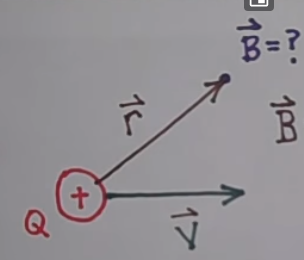 B⃗=?
r⃗
B⃗
+
Q
V⃗